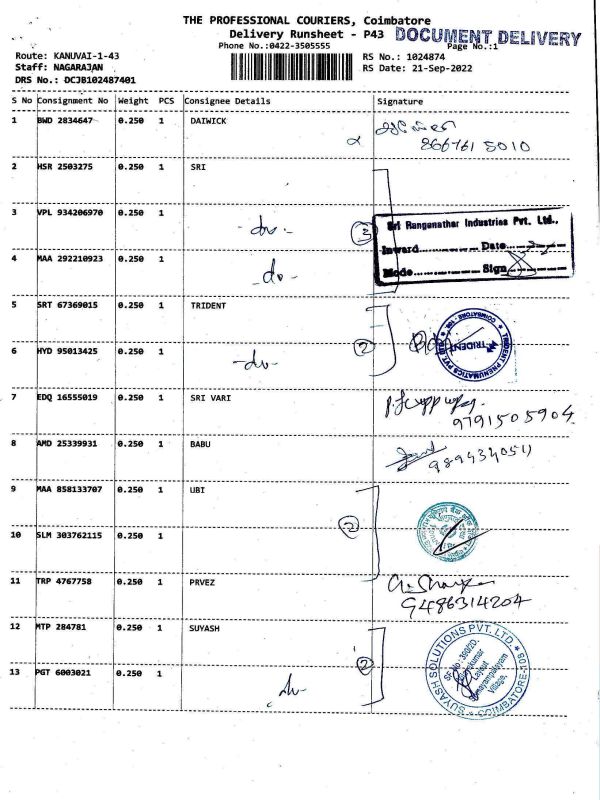 THE PROFESSIONAL COURIERS, Coimbatore
Delivery Runsheet - P43 DOCUMENT DELIVERY
Phone No.:0422-3505555 Page No.:1
Route: KANUVAI-1-43 RS No.: 1024874
Staff: NAGARAJAN RS Date: 21-Sep-2022
DRS No.: DCJB102487401
S No Consignment No Weight PCS Consignee Details Signature
1 BWD 2834647 0.250 1 DAIWICK
8667615010
2 HSR 2503275 0.250 1 SRI
3 VPL 934206970 0.250 1 -do- 3
Sri Ranganathar Industries Pvt. Ltd.,
Inward.............. Date..........
4 MAA 292210923 0.250 1 -do-
Mode.............. Sign..........
5 SRT 67369015 0.250 1 TRIDENT
TRIDENT PNEUMATICS PVT. LTD. * COIMBATORE
TRIDENT
6 HYD 95013425 0.250 1 -do- 2
7 EDQ 16555019 0.250 1 SRI VARI
9791505904
8 AMD 25339931 0.250 1 BABU
9894334051
9 MAA 858133707 0.250 1 UBI
2
10 SLM 303762115 0.250 1
11 TRP 4767758 0.250 1 PRVEZ
9486314204
12 MTP 284781 0.250 1 SUYASH
2
SUYASH SOLUTIONS PVT. LTD. * COIMBATORE
SF.No: 390/2D,
Layout
Somayampalayam
Village,
13 PGT 6003021 0.250 1 -do-